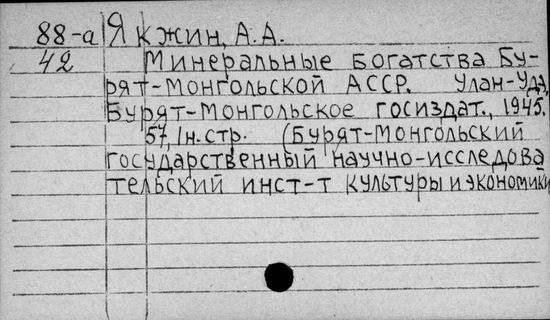 88-а Якжин, А.А.
42 Минеральные богатства Бу-
рят-Монгольской АССР. Улан-Удэ,
Бурят-Монгольское госиздат., 1945.
57, 1н. стр. (Бурят-Монгольский
государственный научно-исследова
тельский инст-т культуры и экономики